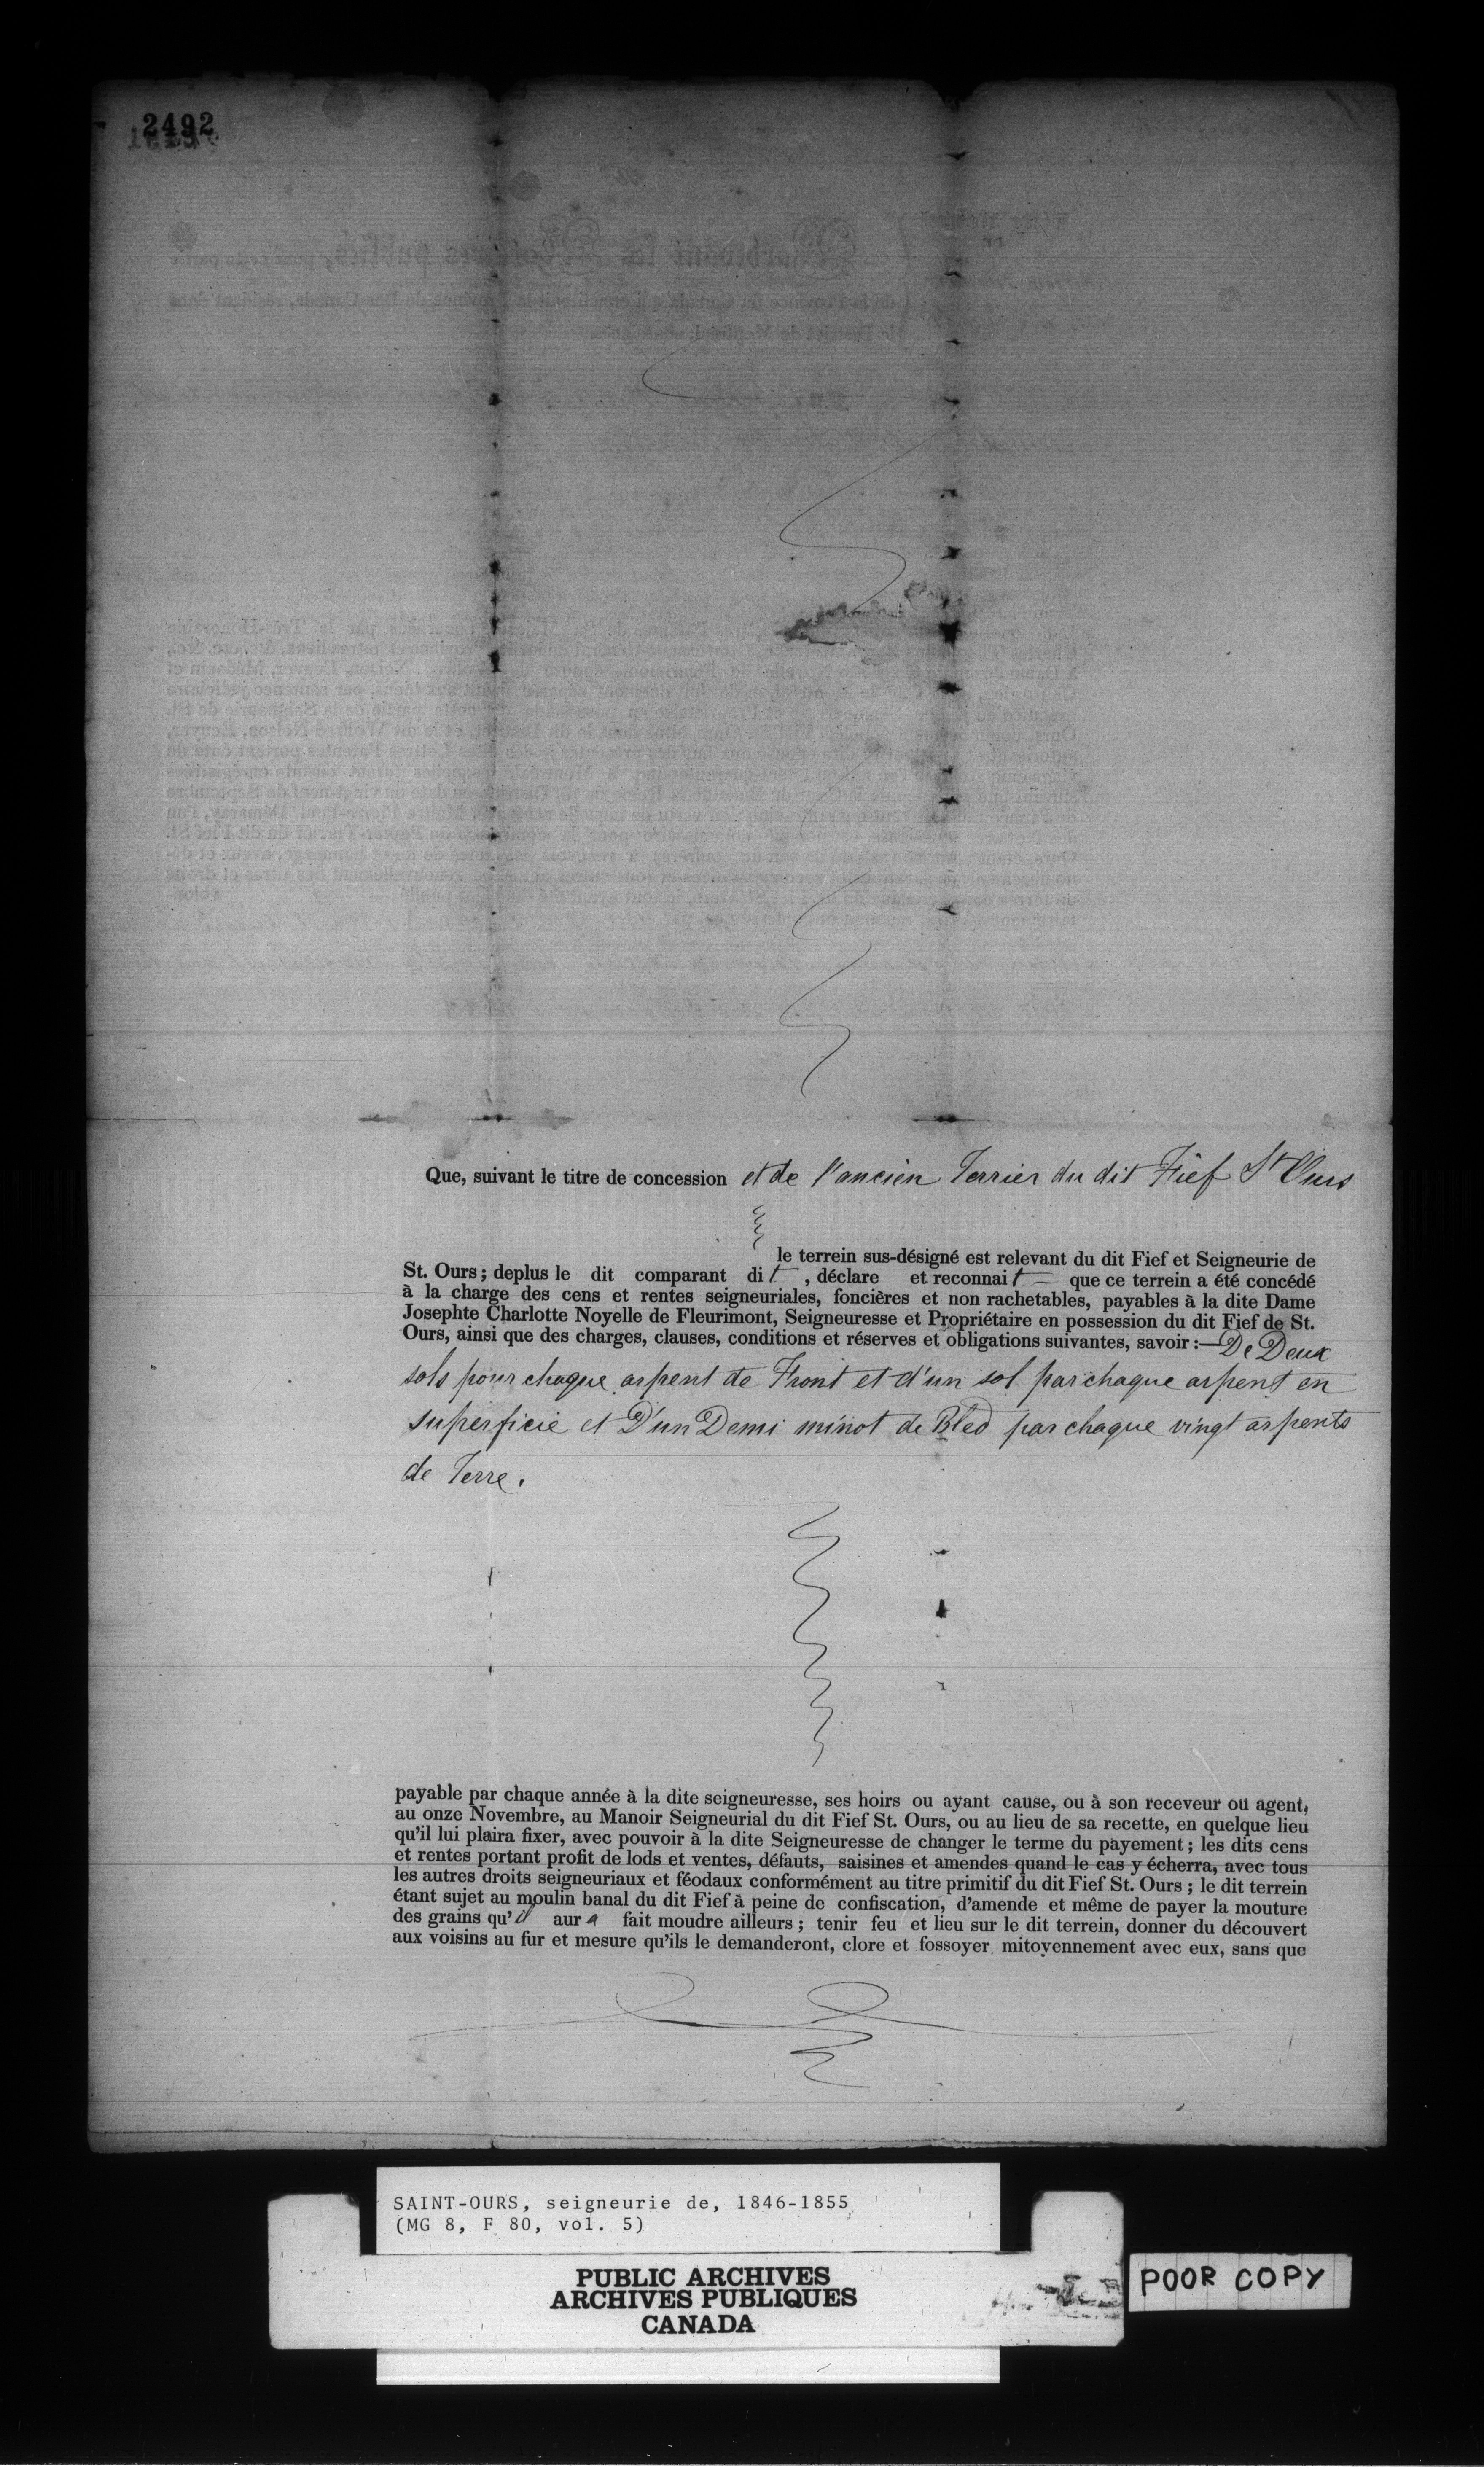 2492
Que, suivant le titre de concession et de l'ancien Terrier du dit Fief St Ours
le terrein sus-désigné est relevant du dit Fief et Seigneurie de
St. Ours; deplus le dit comparant dit, déclare et reconnait — que ce terrein a été concédé
à la charge des cens et rentes seigneuriales, foncières et non rachetables, payables à la dite Dame
Josephte Charlotte Noyelle de Fleurimont, Seigneuresse et Propriétaire en possession du dit Fief de St.
Ours, ainsi que des charges, clauses, conditions et réserves et obligations suivantes, savoir :—De Deux
sols pour chaque arpent de Front et d'un sol par chaque arpent en
superficie et D'un Demi minot de Bled par chaque vingt arpents
de Terre.
payable par chaque année à la dite seigneuresse, ses hoirs ou ayant cause, ou à son receveur ou agent,
au onze Novembre, au Manoir Seigneurial du dit Fief St. Ours, ou au lieu de sa recette, en quelque lieu
qu'il lui plaira fixer, avec pouvoir à la dite Seigneuresse de changer le terme du payement; les dits cens
et rentes portant profit de lods et ventes, défauts, saisines et amendes quand le cas y écherra, avec tous
les autres droits seigneuriaux et féodaux conformément au titre primitif du dit Fief St. Ours; le dit terrein
étant sujet au moulin banal du dit Fief à peine de confiscation, d'amende et même de payer la mouture
des grains qu'il aura fait moudre ailleurs; tenir feu et lieu sur le dit terrein, donner du découvert
aux voisins au fur et mesure qu'ils le demanderont, clore et fossoyer mitoyennement avec eux, sans que
SAINT-OURS, seigneurie de, 1846-1855
(MG 8, F 80, vol. 5)
PUBLIC ARCHIVES
ARCHIVES PUBLIQUES
CANADA
POOR COPY